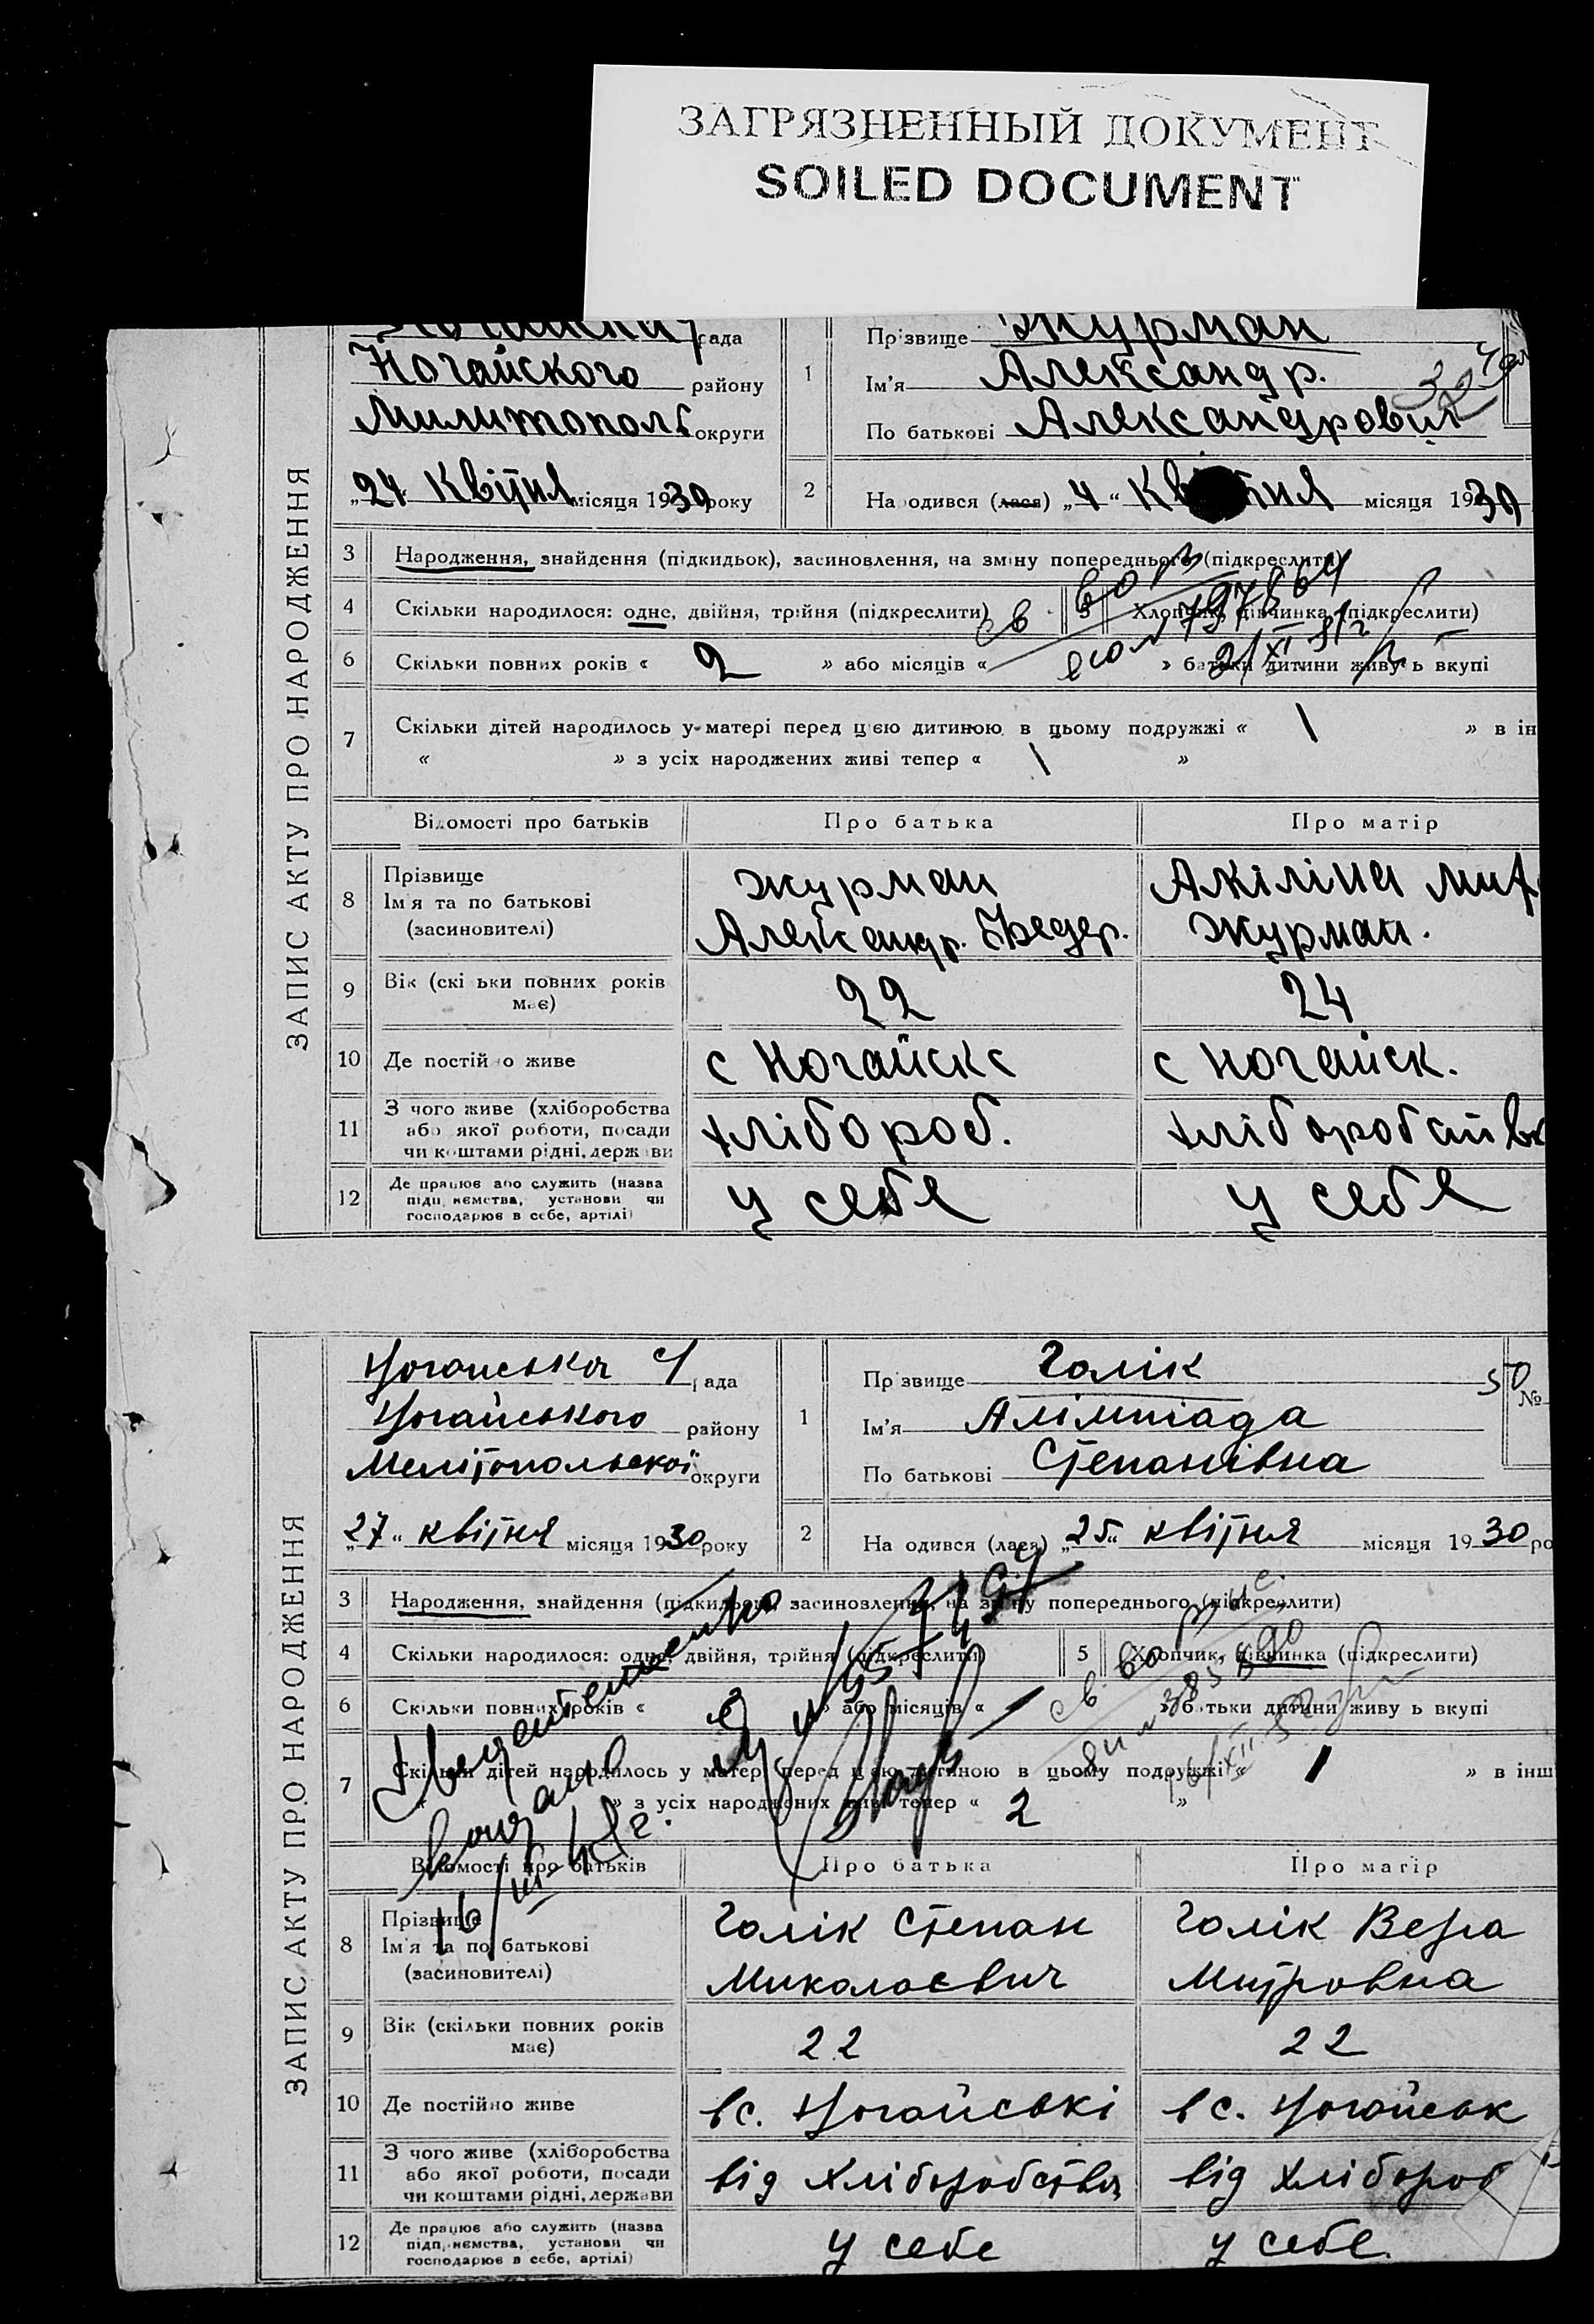 ЗАГРЯЗНЕННЫЙ ДОКУМЕНТ
SOILED DOCUMENT
ЗАПИС АКТУ ПРО НАРОДЖЕННЯ
рада
Ногайского району
Милитополь округи
„24 Квітня місяця 1930 року
1
Прізвище Журман
Ім'я Александр.
По батькові Александрович
2
На одився (лася) „4“ Кв тня місяця 1930
3 Народження, знайдення (підкидьок), засиновлення, на зміну попереднього (підкреслити)
4 Скільки народилося: одне, двійня, трійня (підкреслити)
5 Хлопчик, дівчинка (підкреслити)
6 Скільки повних років « 2 » або місяців « » батьки дитини живу ь вкупі
7 Скільки дітей народилось у матері перед цією дитиною в цьому подружжі « 1 » в ін
« » з усіх народжених живі тепер « 1 »
Відомості про батьків Про батька Про матір
8 Прізвище
Ім'я та по батькові
(засиновителі)
Журман
Александр. Федер.
Акіліна Миф
Журман.
9 Вік (скі ьки повних років має) 22 24
10 Де постій о живе с Ногайск с с Ногайск.
11 З чого живе (хліборобства
або якої роботи, посади
чи коштами рідні, держ ви
хлібороб. хліборобств
12 Де працює або служить (назва
підп иємства, установи чи
господарює в себе, артілі)
у себе у себе
ЗАПИС АКТУ ПРО НАРОДЖЕННЯ
Ногаиська с/рада
Ногайського району
Мелітопольської округи
„27“ квітня місяця 1930 року
1
Пр звище Голік
Ім'я Алімпіада
По батькові Степанівна
50
№
2
На одився (лася) „25“ квітня місяця 1930 ро
3 Народження, знайдення (підкидьок), засиновлення, на зміну попереднього (підкреслити)
4 Скільки народилося: одне, двійня, трійня (підкреслити)
5 Хлопчик, дівчинка (підкреслити)
6 Скільки повних років « » або місяців « – » б тьки дитини живу ь вкупі
7 Скільки дітей народилось у матері перед цією дитиною в цьому подружжі « 1 » в інш
« » з усіх народжених живі тепер « 2 »
16/III-48г.
Відомості про батьків Про батька Про матір
8 Прізвище
Ім'я та по батькові
(засиновителі)
Голік Степан
Миколаєвич
Голік Вера
Митровна
9 Вік (скільки повних років має) 22 22
10 Де постійно живе в с. Ногайські в с. Ногайськ
11 З чого живе (хліборобства
або якої роботи, посади
чи коштами рідні, держави
від Хліборобства від Хлібороб
12 Де працює або служить (назва
підп иємства, установи чи
господарює в себе, артілі)
у себе у себе.